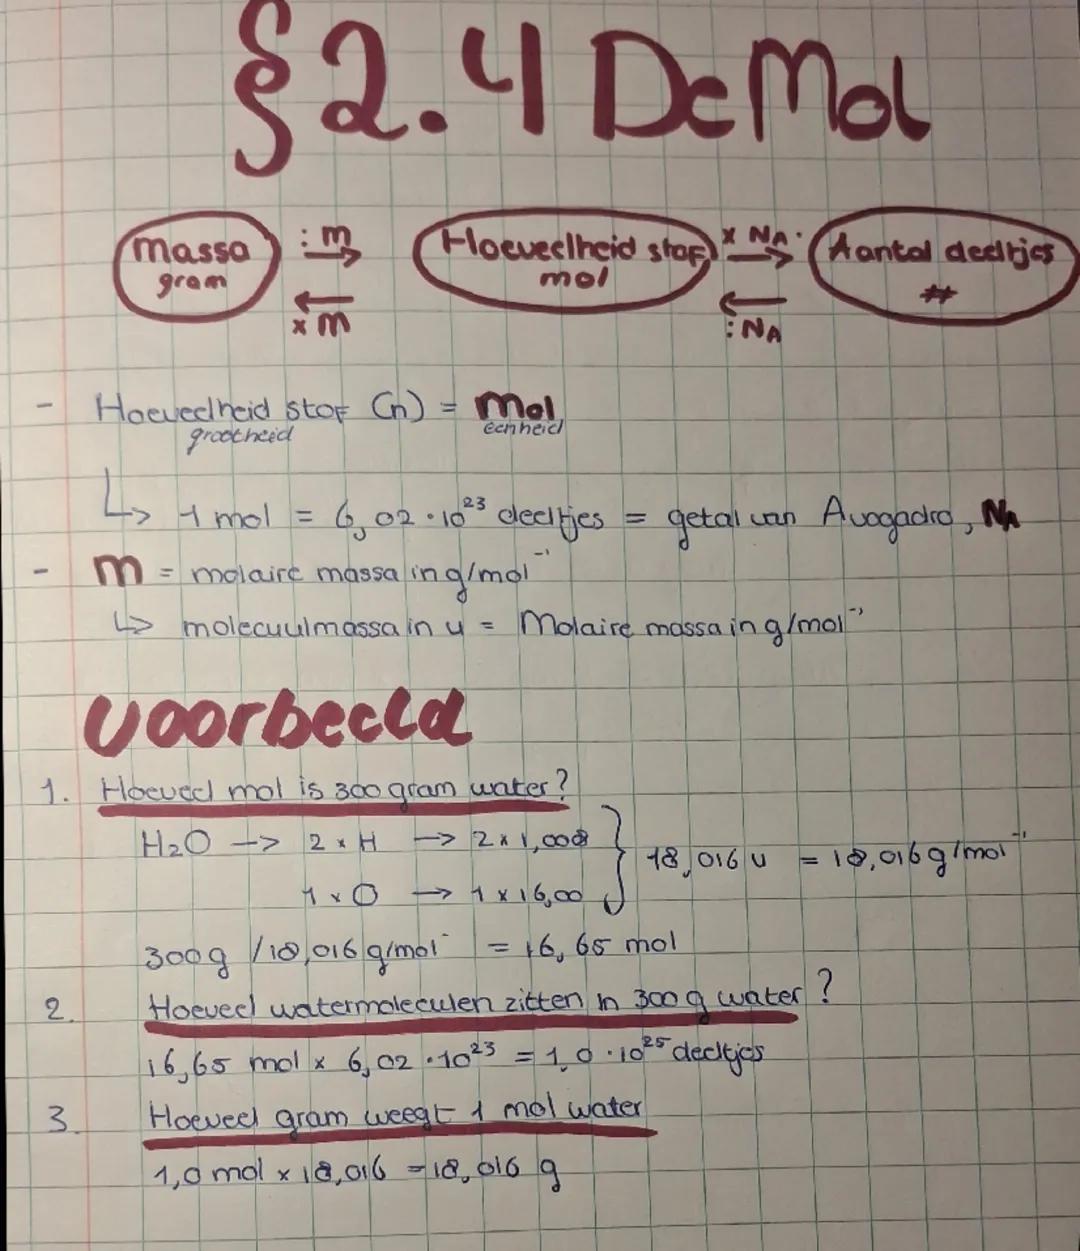 § 2.4 De Mol
massa gram : m → ← x m Hoeveelheid stof mol x NA. → ← : NA Aantal deeltjes #
- Hoeveelheid stof (n) = Mol
grootheid eenheid
↳ 1 mol = 6,02 · 10²³ deeltjes = getal van Avogadro, NA
- m = molaire massa in g/mol⁻¹
↳ molecuulmassa in u = Molaire massa in g/mol⁻¹
Voorbeeld
1. Hoeveel mol is 300 gram water?
H₂O → 2 x H → 2 x 1,008 } 18,016 u = 18,016 g/mol⁻¹
1 x O → 1 x 16,00
300g / 18,016 g/mol⁻ = 16,65 mol
2. Hoeveel watermoleculen zitten in 300 g water?
16,65 mol x 6,02 · 10²³ = 1,0 · 10²⁵ deeltjes
3. Hoeveel gram weegt 1 mol water
1,0 mol x 18,016 = 18,016 g